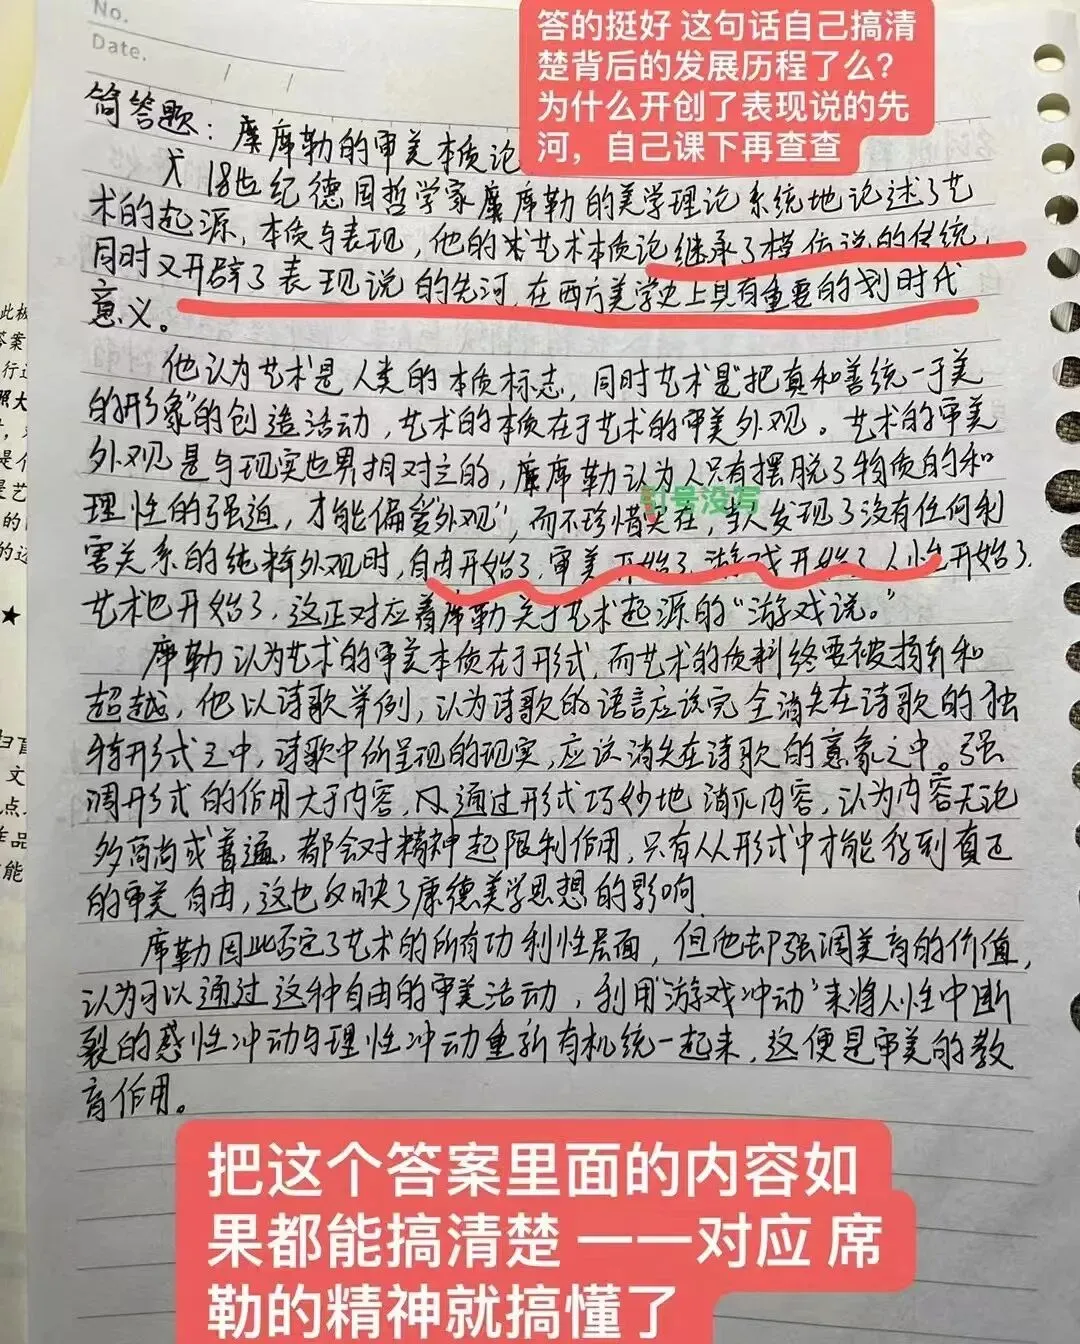 No.
Date.
答的挺好 这句话自己搞清
楚背后的发展历程了么?
为什么开创了表现说的先
河，自己课下再查查
简答题：席勒的审美本质论
18世纪德国哲学家席勒的美学理论系统地论述了艺
术的起源，本质与表现，他的艺术本质论继承了模仿说的传统，
同时又开辟了表现说的先河，在西方美学史上具有重要的划时代
意义。
他认为艺术是人类的本质标志，同时艺术是“把真和善统一于美
的形象”的创造活动，艺术的本质在于艺术的审美外观。艺术的审美
外观是与现实世界相对立的，席勒认为人只有摆脱了物质的和
理性的强迫，才能偏爱“外观”，而不珍惜实在，当人发现了没有任何利
引号没写
害关系的纯粹外观时，自由开始了，审美开始了，游戏开始了，人性开始了，
艺术也开始了，这正对应着席勒关于艺术起源的“游戏说。”
席勒认为艺术的审美本质在于形式，而艺术的质料终要被扬弃和
超越，他以诗歌举例，认为诗歌的语言应该完全消失在诗歌的独
特形式之中，诗歌中所呈现的现实，应该消失在诗歌的意象之中。强
调形式的作用大于内容，通过形式巧妙地消泯内容，认为内容无论
多高尚或普遍，都会对精神起限制作用，只有从形式中才能得到真正
的审美自由，这也反映了康德美学思想的影响
席勒因此否定了艺术的所有功利性层面，但他却强调美育的价值，
认为可以通过这种自由的审美活动，利用“游戏冲动”来将人性中断
裂的感性冲动与理性冲动重新有机统一起来，这便是审美的教
育作用。
把这个答案里面的内容如
果都能搞清楚 一一对应 席
勒的精神就搞懂了
此板
答案
行过
照大
是亻
是艺
的
的过
★
扫盲
文
点
作品
能